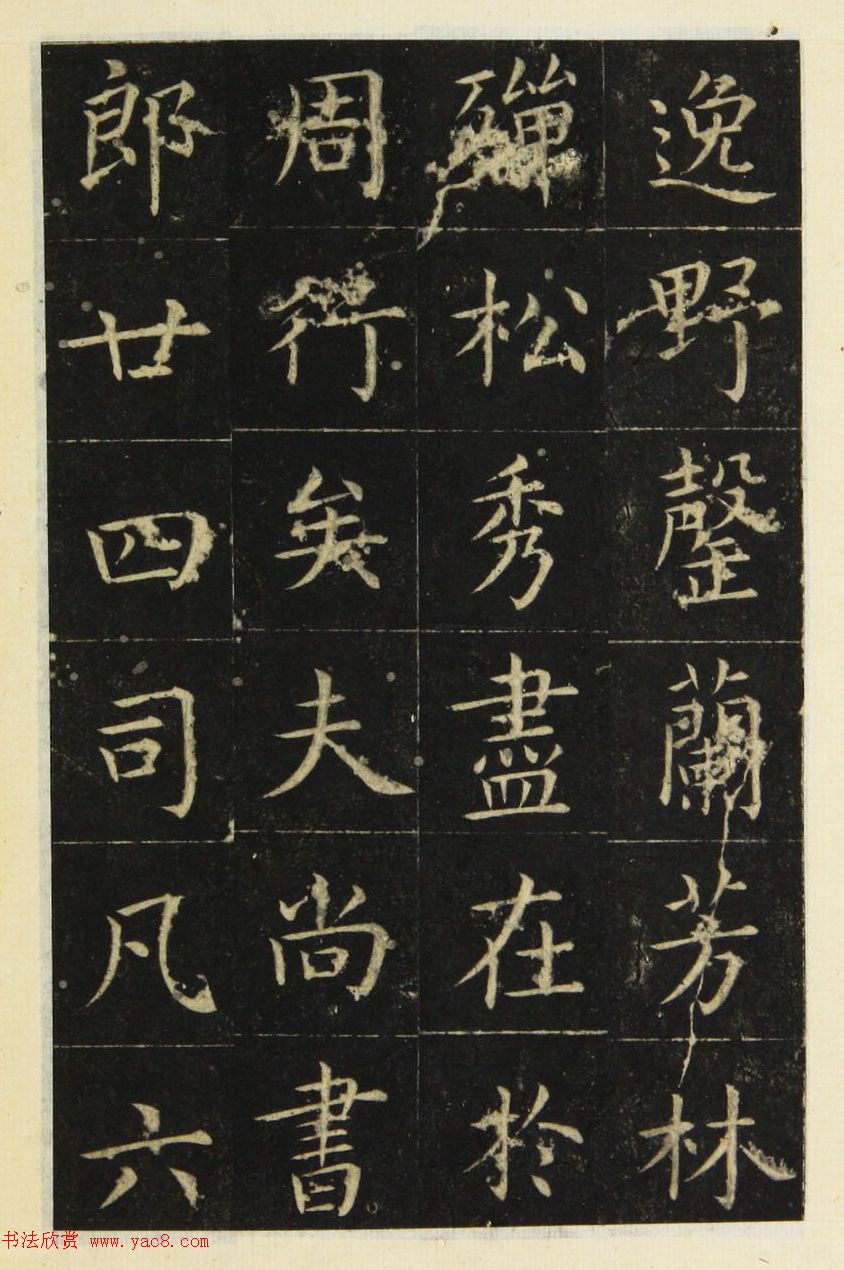 逸野罄蘭芳林
殫松秀盡在於
周行矣夫尚書
郎廿四司凡六
书法欣赏 www.yac8.com